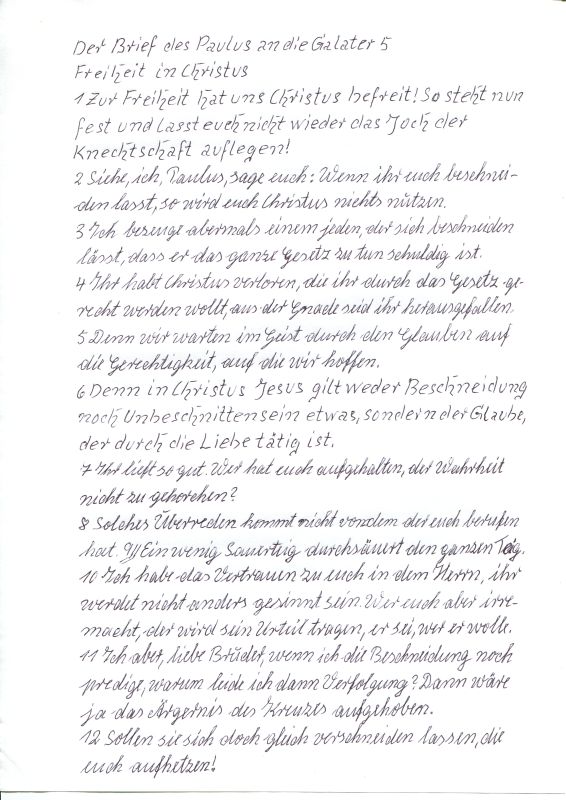 Der Brief des Paulus an die Galater 5
Freiheit in Christus
1 Zur Freiheit hat uns Christus befreit! So steht nun
fest und lasst euch nicht wieder das Joch der
Knechtschaft auflegen!
2 Siehe, ich, Paulus, sage euch: Wenn ihr euch beschnei-
den lasst, so wird euch Christus nichts nützen.
3 Ich bezeuge abermals einem jeden, der sich beschneiden
lässt, dass er das ganze Gesetz zu tun schuldig ist.
4 Ihr habt Christus verloren, die ihr durch das Gesetz ge-
recht werden wollt, aus der Gnade seid ihr herausgefallen.
5 Denn wir warten im Geist durch den Glauben auf
die Gerechtigkeit, auf die wir hoffen.
6 Denn in Christus Jesus gilt weder Beschneidung
noch Unbeschnittensein etwas, sondern der Glaube,
der durch die Liebe tätig ist.
7 Ihr lieft so gut. Wer hat euch aufgehalten, der Wahrheit
nicht zu gehorchen?
8 Solches Überreden kommt nicht von dem der euch berufen
hat. 9 Ein wenig Sauerteig durchsäuert den ganzen Teig.
10 Ich habe das Vertrauen zu euch in dem Herrn, ihr
werdet nicht anders gesinnt sein. Wer euch aber irre-
macht, der wird sein Urteil tragen, er sei, wer er wolle.
11 Ich aber, liebe Brüder, wenn ich die Beschneidung noch
predige, warum leide ich dann Verfolgung? Dann wäre
ja das Ärgernis des Kreuzes aufgehoben.
12 Sollen sie sich doch gleich verschneiden lassen, die
euch aufhetzen!